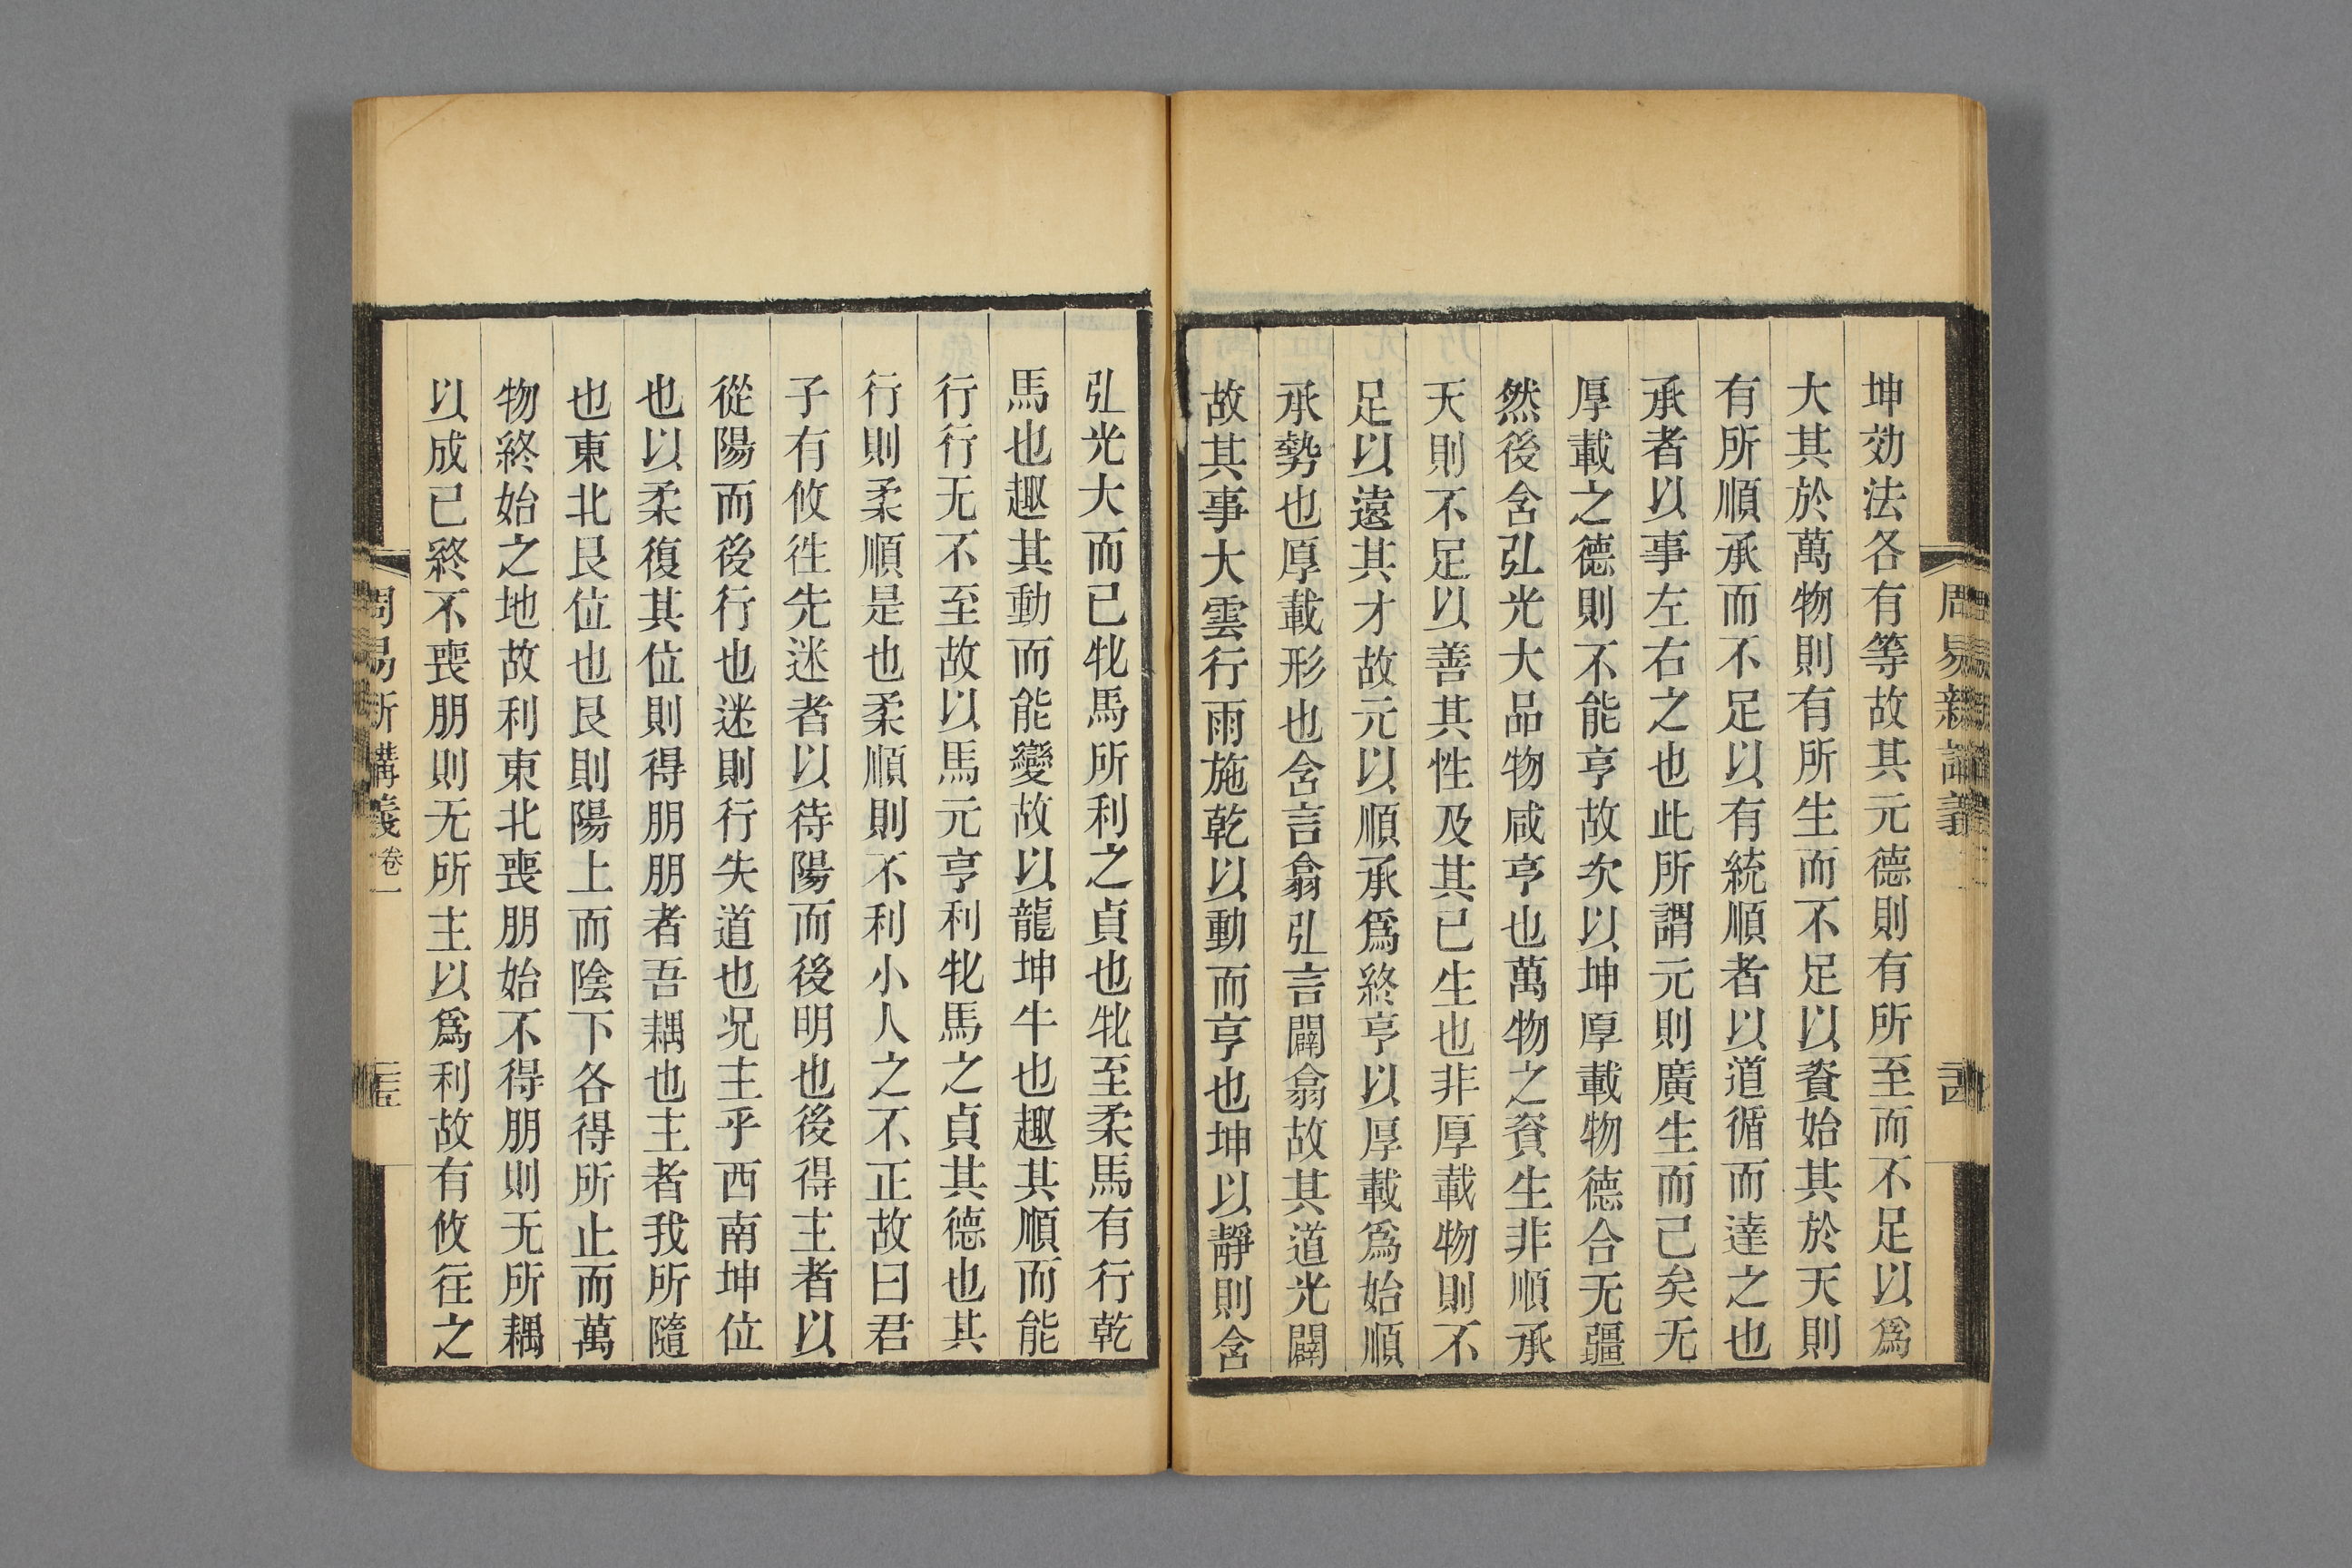 周易新講義
坤効法各有等故其元德則有所至而不足以爲
大其於萬物則有所生而不足以資始其於天則
有所順承而不足以有統順者以道循而達之也
承者以事左右之也此所謂元則廣生而己矣无
厚載之德則不能亨故次以坤厚載物德合无疆
然後含弘光大品物咸亨也萬物之資生非順承
天則不足以善其性及其已生也非厚載物則不
足以遠其才故元以順承爲終亨以厚載爲始順
承勢也厚載形也含言翕弘言闢翕故其道光闢
故其事大雲行雨施乾以動而亨也坤以靜則含
弘光大而已牝馬所利之貞也牝至柔馬有行乾
馬也趣其動而能變故以龍坤牛也趣其順而能
行行无不至故以馬元亨利牝馬之貞其德也其
行則柔順是也柔順則不利小人之不正故曰君
子有攸徃先迷者以待陽而後明也後得主者以
從陽而後行也迷則行失道也况主乎西南坤位
也以柔復其位則得朋朋者吾耦也主者我所隨
也東北艮位也艮則陽上而陰下各得所止而萬
物終始之地故利東北喪朋始不得朋則无所耦
以成已終不喪朋則无所主以爲利故有攸往之
周易新講義 卷一